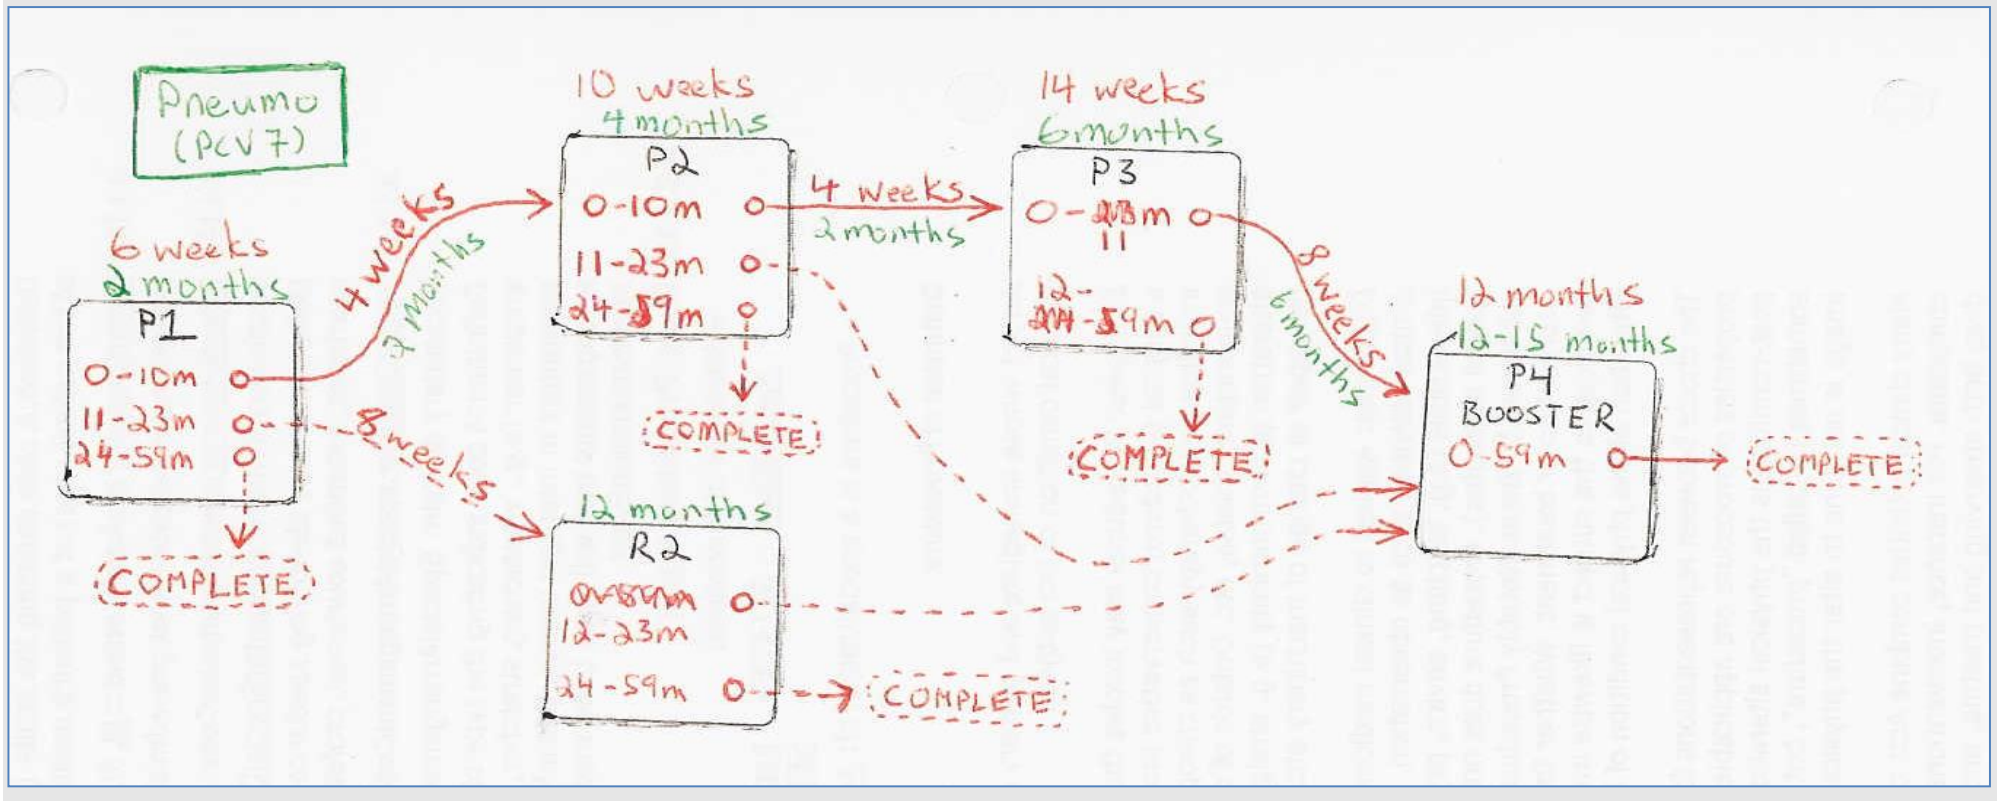 Pneumo
(PCV7)
6 weeks
2 months
P1
0-10m
11-23m
24-59m
COMPLETE
4 weeks
months
8 weeks
10 weeks
4 months
P2
0-10m
11-23m
24-59m
COMPLETE
4 weeks
2 months
12 months
R2
12-23m
24-59m
COMPLETE
14 weeks
6 months
P3
0-
m
11
12-
-59m
COMPLETE
8 weeks
6 months
12 months
12-15 months
P4
BOOSTER
0-59m
COMPLETE